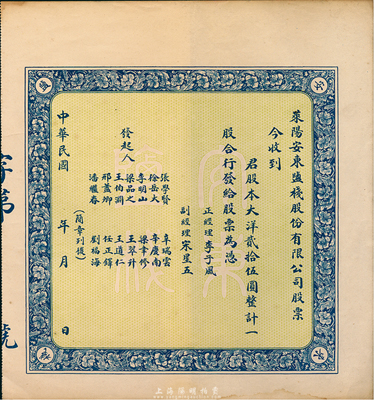 萊陽安東鹽棧股份有限公司股票
今收到
君股本大洋貳拾伍圓整計一
股合行發給股票為憑
正經理 李子風
副經理 宋星五
發起人
張學賢
徐岳大
李明山
梁品之
王伯澗
邢蓋卿
潘繼春
卓瑞雲
李慶南
梁常修
王翠升
王道仁
任正鐸
劉福海
(簡章列後)
中華民國 年 月 日
字第 號